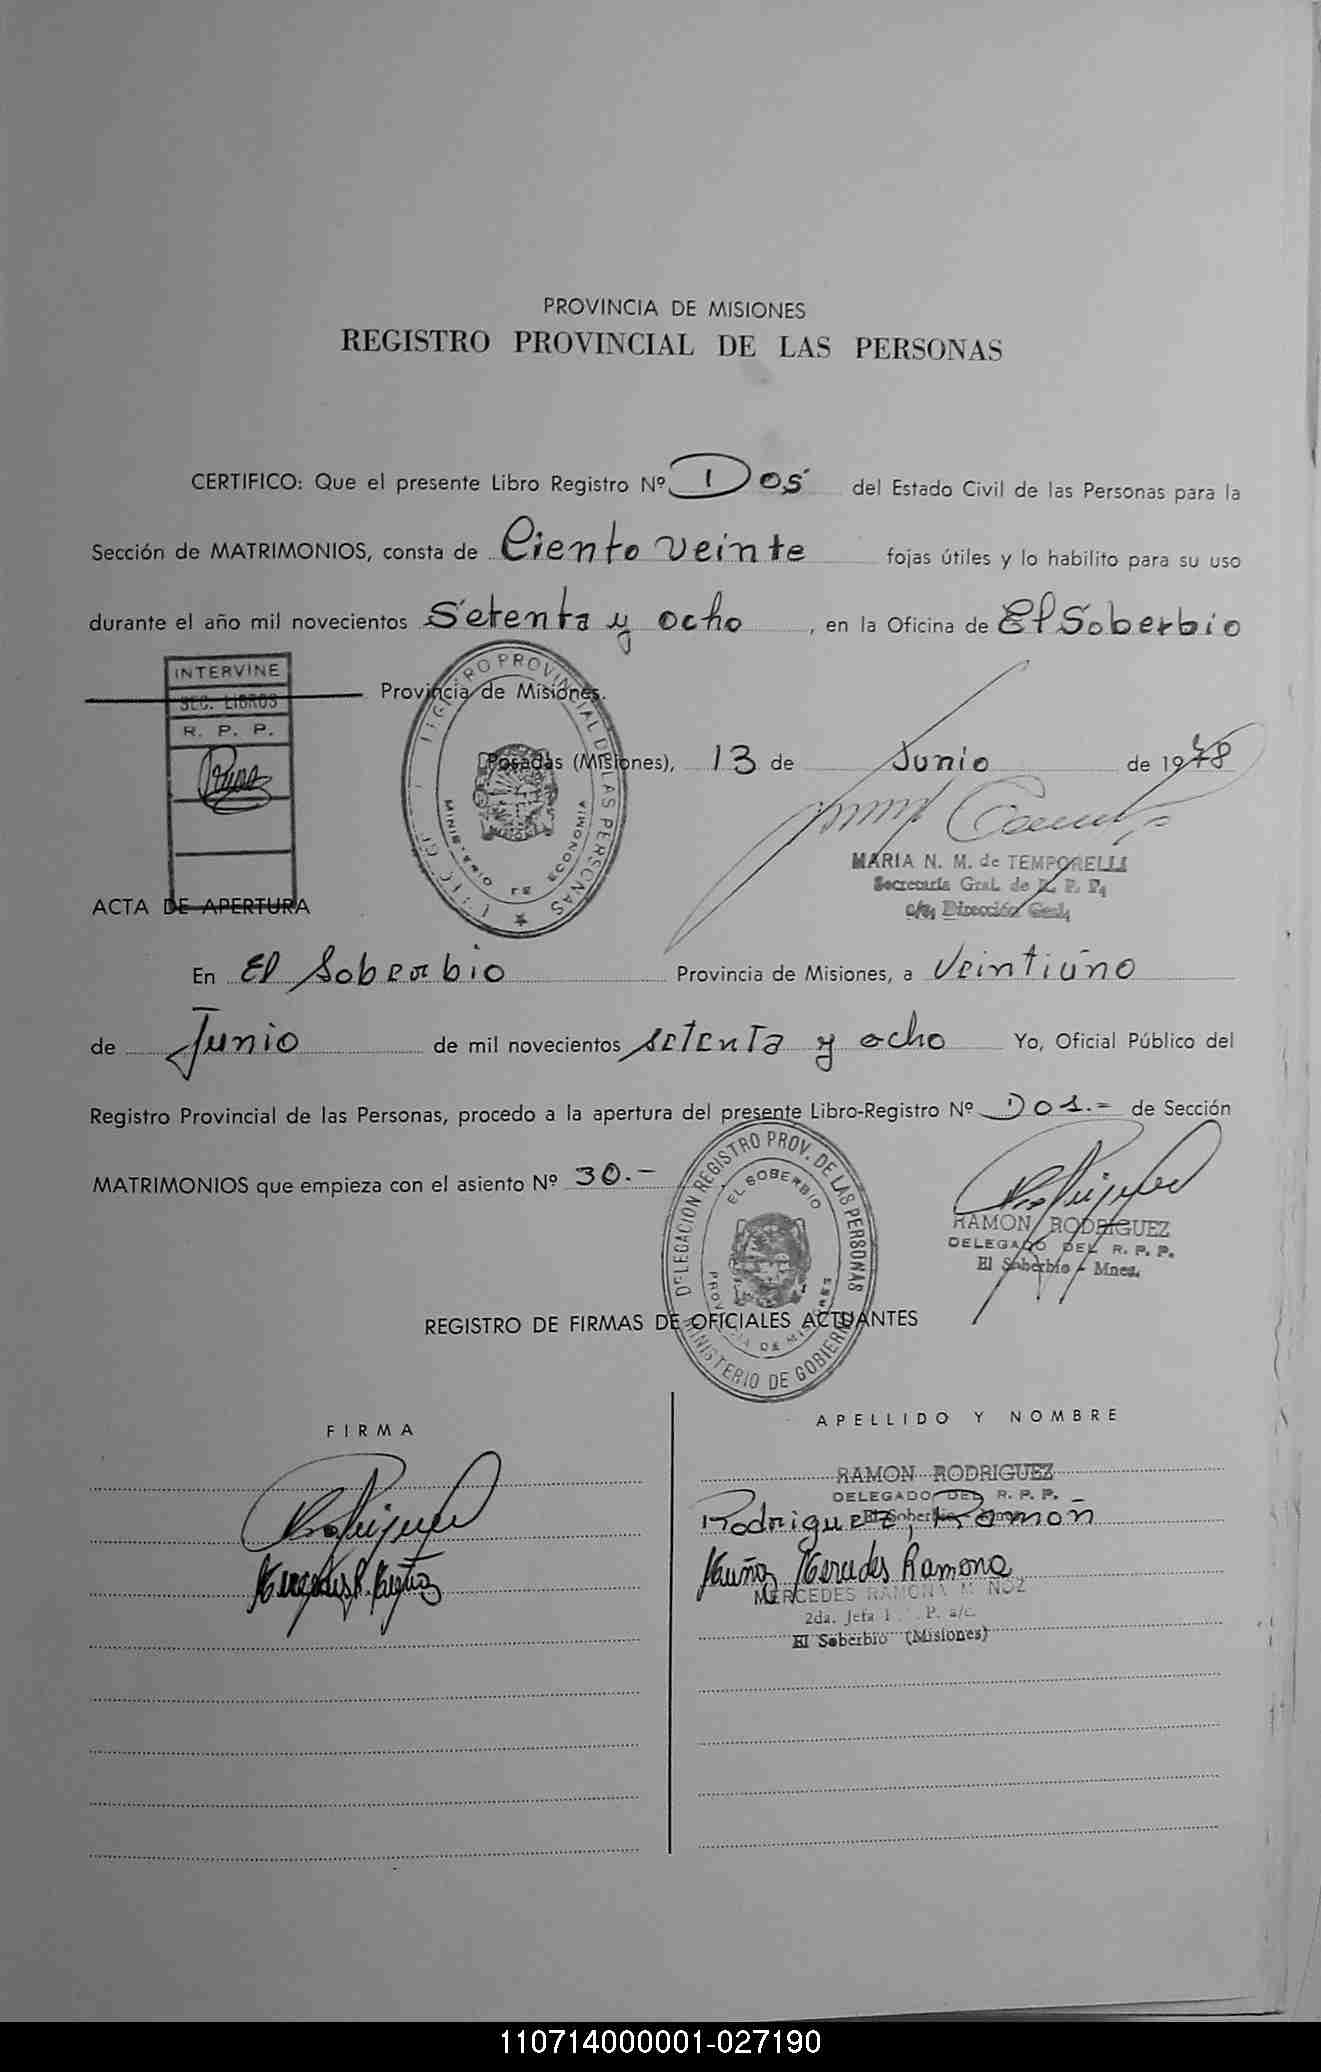 PROVINCIA DE MISIONES
REGISTRO PROVINCIAL DE LAS PERSONAS
CERTIFICO: Que el presente Libro Registro Nº Dos del Estado Civil de las Personas para la
Sección de MATRIMONIOS, consta de Ciento veinte fojas útiles y lo habilito para su uso
durante el año mil novecientos Setenta y ocho, en la Oficina de El Soberbio
Provincia de Misiones.
INTERVINE
SEC. LIBROS
R. P. P.
REGISTRO PROVINCIAL DE LAS PERSONAS
MINISTERIO DE ECONOMIA
Posadas (Misiones), 13 de Junio de 1978
MARIA N. M. de TEMPORELLI
Secretaria Gral. de R. P. P.
c/a. Dirección Gral.
ACTA DE APERTURA
En El Soberbio Provincia de Misiones, a Veintiuno
de Junio de mil novecientos setenta y ocho Yo, Oficial Público del
Registro Provincial de las Personas, procedo a la apertura del presente Libro-Registro Nº Dos.= de Sección
MATRIMONIOS que empieza con el asiento Nº 30.-
DELEGACION REGISTRO PROV. DE LAS PERSONAS
EL SOBERBIO
PROVINCIA DE MISIONES
MINISTERIO DE GOBIERNO
RAMON RODRIGUEZ
DELEGADO DEL R. P. P.
El Soberbio - Mnes.
REGISTRO DE FIRMAS DE OFICIALES ACTUANTES
FIRMA
APELLIDO Y NOMBRE
RAMON RODRIGUEZ
DELEGADO DEL R. P. P.
El Soberbio
Rodriguez, Ramón
Mercedes R. Muñoz
Muñoz Mercedes Ramona
MERCEDES RAMONA MUÑOZ
2da. Jefa P. a/c.
El Soberbio (Misiones)
110714000001-027190